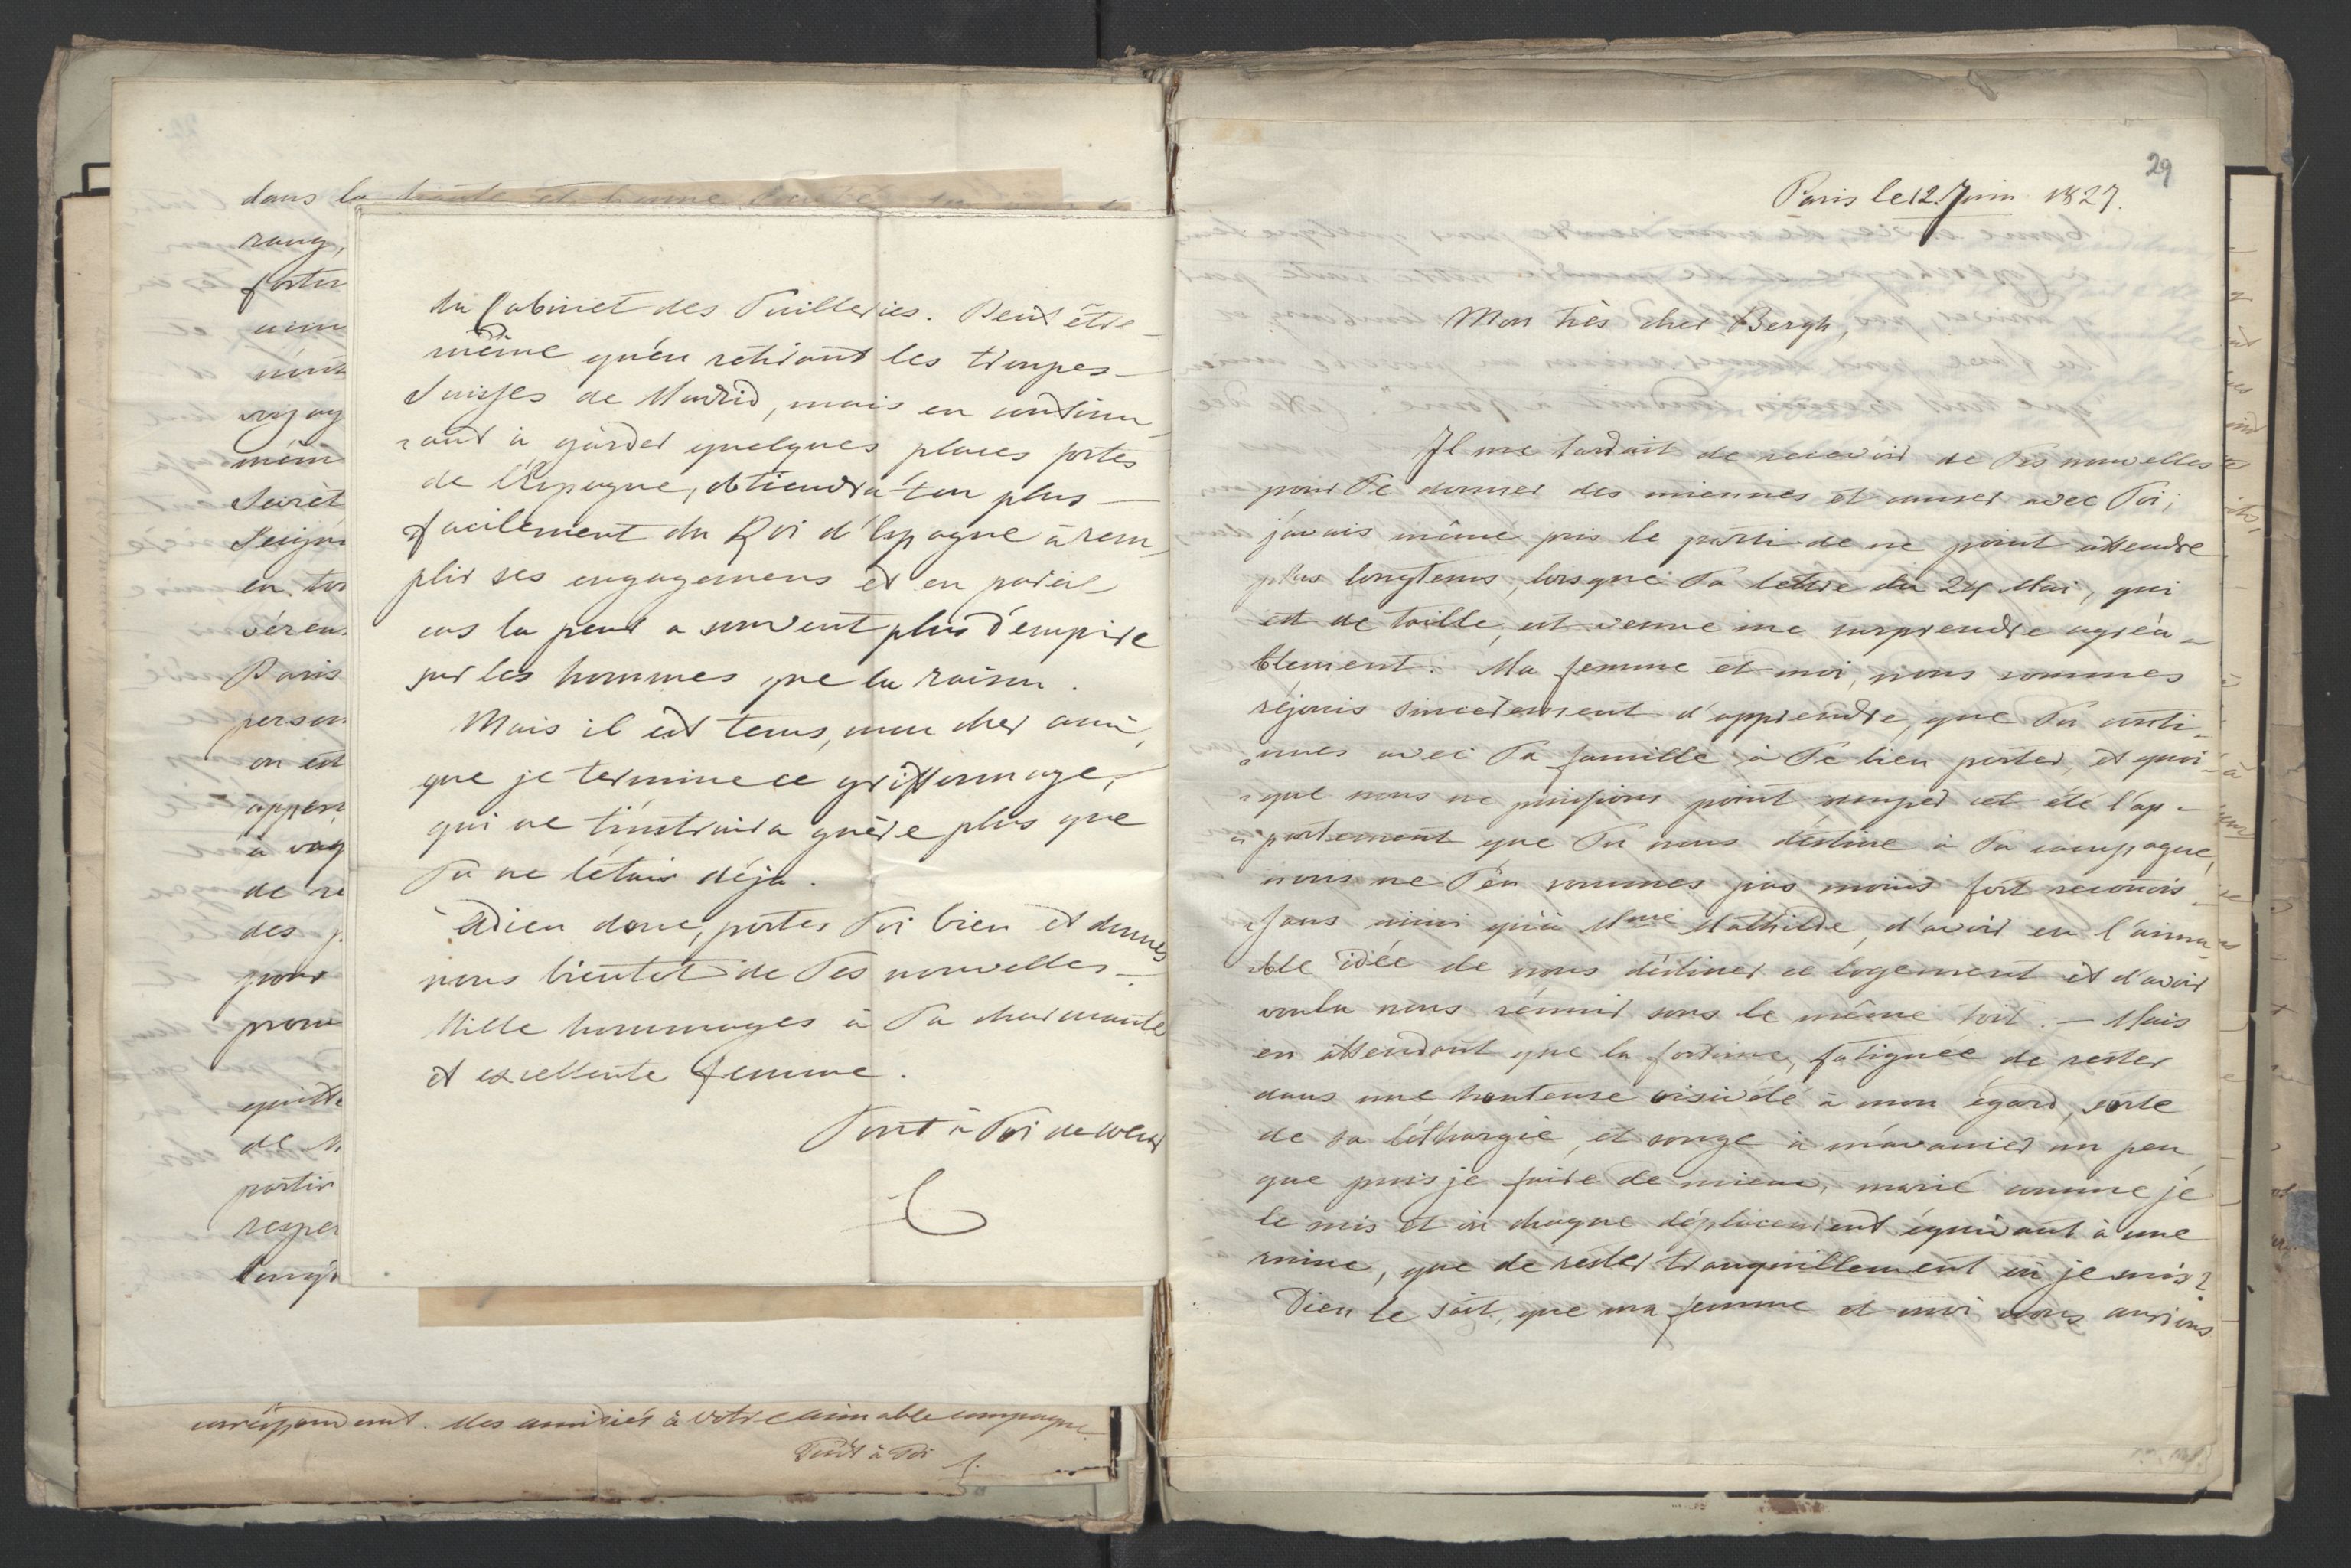 dans la haute et bonne
rang,
forter
aim
voyag
mêm
Secrét
Seign
en tou
véren
Paris
person
on est
appar
à voy
de re
des p.
pour
prou
quitte
de M
partir
respec
longt
du Cabinet des Tuilleries. Peut être
même qu'en rétirant les troupes
Suisses de Madrid, mais en continu
ant à garder quelques places fortes
de l'Espagne, obtiendra-t-on plus
facilement du Roi d'Espagne à rem
plir ses engagemens et en pareil
cas la peur a souvent plus d'empire
sur les hommes que la raison.
Mais il est tems, mon cher ami,
que je termine ce griffonnage,
qui ne t'instruira guère plus que
Tu ne l'étais déja.
Adieu donc, portes Toi bien et donnes
nous bientot de Tes nouvelles.
Mille hommages à Ta charmante
et excellente femme.
Tout à Toi de coeur
C
correspondant. Mes amitiés à votre aimable compagne.
Tout à Toi
29
Paris le 12. Juin 1827.
Mon très cher Bergh,
Il me tardait de recevoir de Tes nouvelles
pour Te donner des miennes et causer avec Toi;
j'avais même pris le parti de ne point attendre
plus longtems, lorsque Ta lettre du 24 Mai, qui
est de taille, est venue me surprendre agréa-
blement. Ma femme et moi, nous sommes
réjouis sincèrement d'apprendre, que Tu conti-
nues avec Ta famille à Te bien porter, et quoi-
que nous ne puissions point occuper cet été l'ap-
partement que Tu nous destine à Ta campagne,
nous ne T'en sommes pas moins fort reconois-
sans ainsi qu'à Mme Mathilde, d'avoir eu l'aima-
ble idée de nous destiner ce logement et d'avoir
voulu nous réunir sous le même toit. — Mais
en attendant que la fortune, fatiguée de rester
dans une honteuse oisiveté à mon égard, sorte
de sa léthargie, et songe à m'avancer un peu,
que puis je faire de mieux, marié comme je
le suis et où chaque déplacement équivaut à une
ruine, que de rester tranquillement où je suis?
Dieu le sait, que ma femme et moi nous aurions